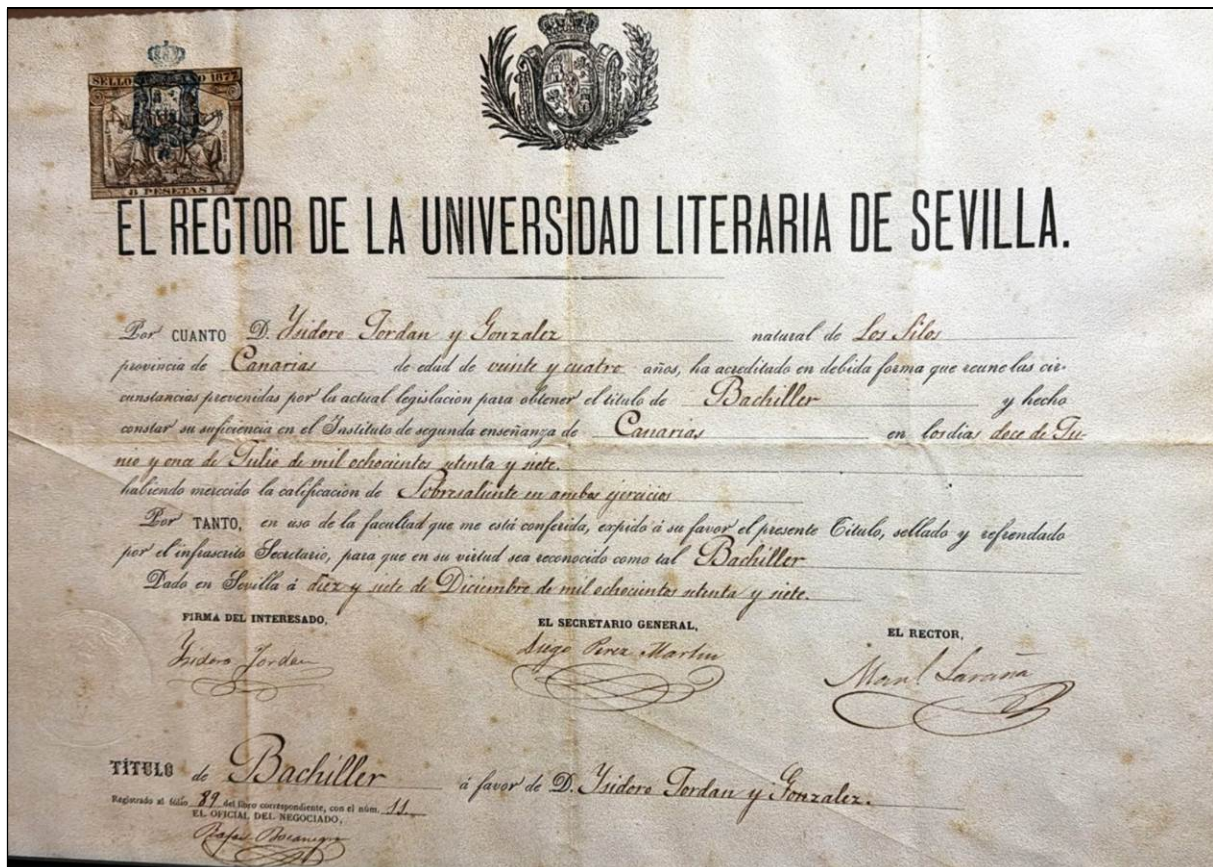 SELLO AÑO 1877
8 PESETAS
EL RECTOR DE LA UNIVERSIDAD LITERARIA DE SEVILLA.
Por CUANTO D. Ysidoro Jordan y Gonzalez natural de Los Silos
provincia de Canarias de edad de veinte y cuatro años, ha acreditado en debida forma que reune las cir-
cunstancias prevenidas por la actual legislacion para obtener el titulo de Bachiller y hecho
constar su suficiencia en el Instituto de segunda enseñanza de Canarias en los dias doce de Ju-
nio y once de Julio de mil ochocientos setenta y siete.
habiendo merecido la calificacion de Sobresaliente en ambos ejercicios
Por TANTO, en uso de la facultad que me está conferida, expido á su favor el presente Título, sellado y refrendado
por el infrascrito Secretario, para que en su virtud sea reconocido como tal Bachiller
Dado en Sevilla á diez y siete de Diciembre de mil ochocientos setenta y siete.
FIRMA DEL INTERESADO,
EL SECRETARIO GENERAL,
EL RECTOR,
Ysidoro Jordan
Diego Perez Martin
Manl Laraña
TÍTULO de Bachiller á favor de D. Ysidoro Jordan y Gonzalez.
Registrado al folio 89 del libro correspondiente, con el núm. 11
EL OFICIAL DEL NEGOCIADO,
Rafael Bocanegra